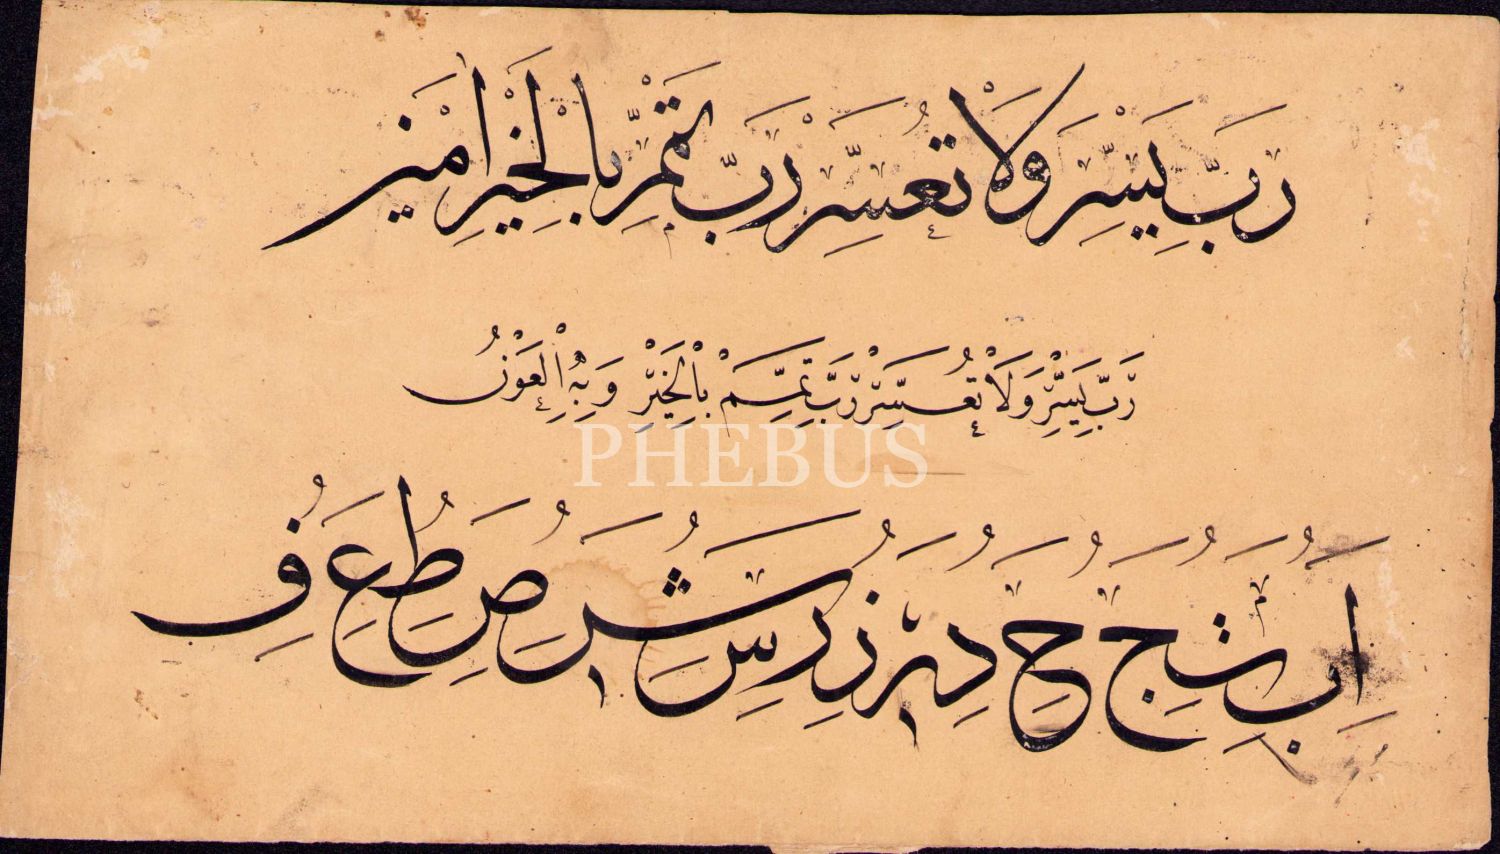 رَبِّ يَسِّرْ وَلَا تُعَسِّرْ رَبِّ تَمِّمْ بِالْخَيْرِ اٰمِين
رَبِّ يَسِّرْ وَلَا تُعَسِّرْ رَبِّ تَمِّمْ بِالْخَيْرْ وَبِهِ الْعَوْنُ
PHEBUS
ا ب ث ج ح د ر ز ر س ش ص ط ع ف